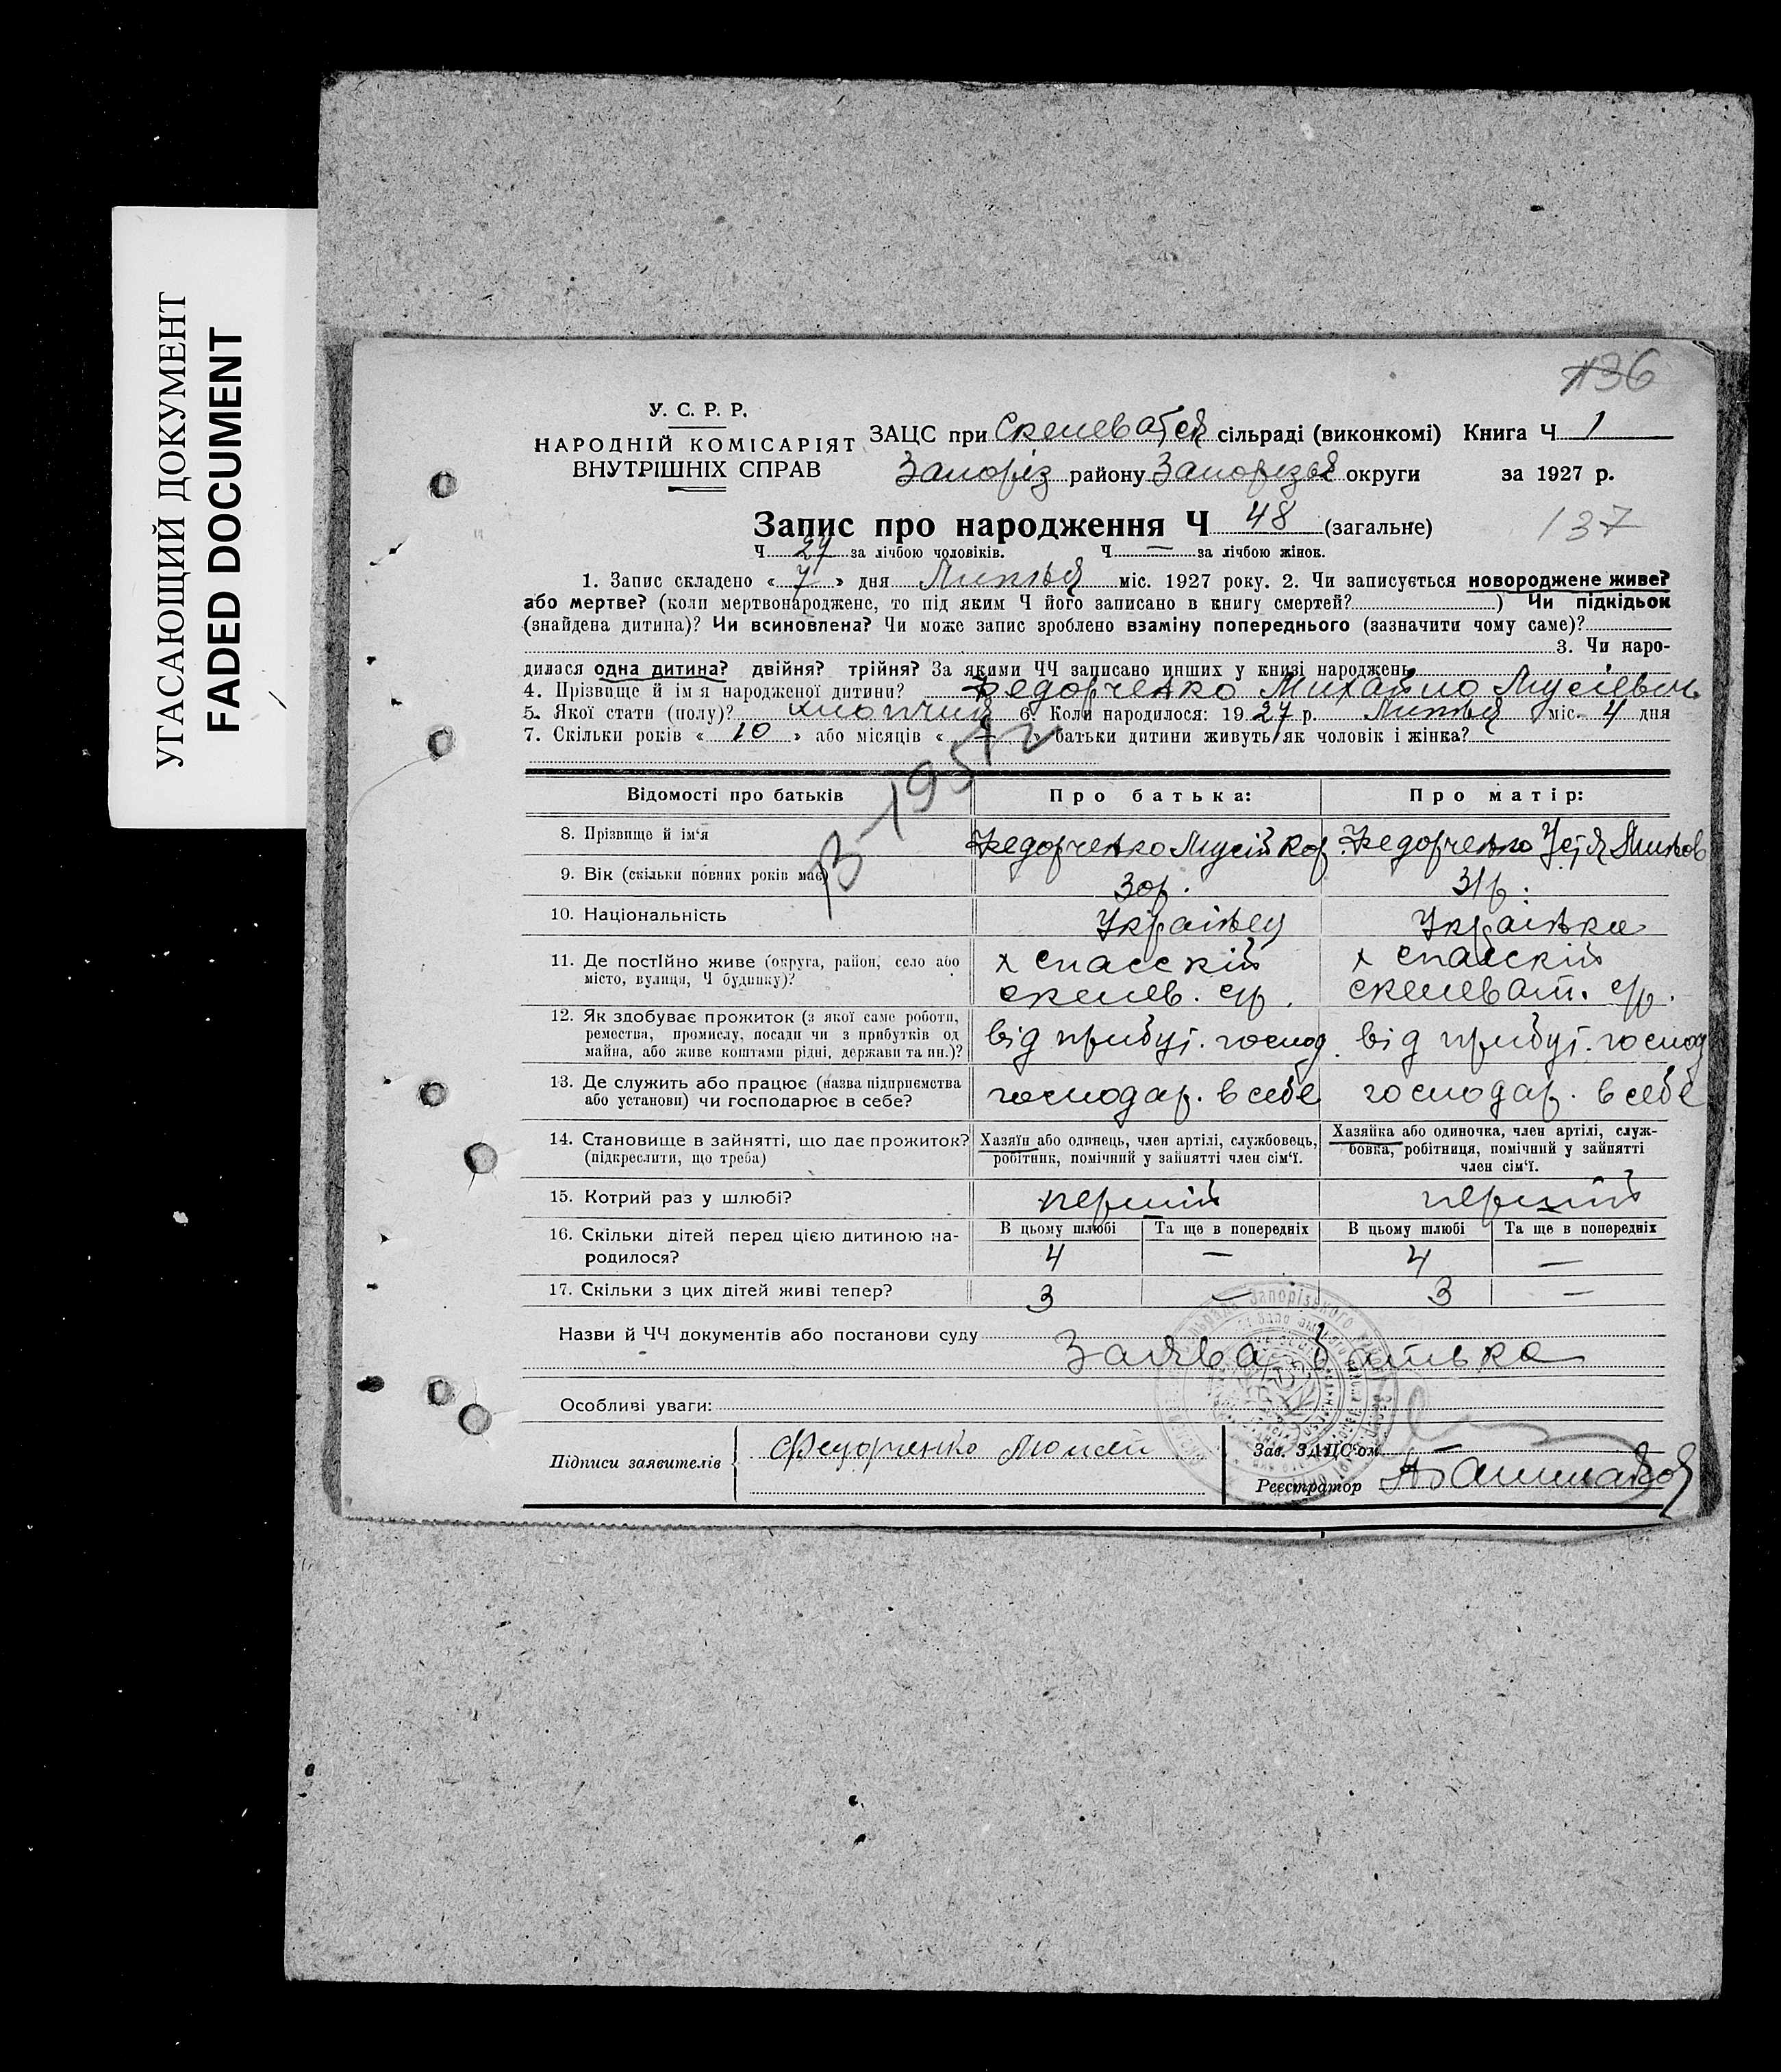 УГАСАЮЩИЙ ДОКУМЕНТ
FADED DOCUMENT
136
У. С. Р. Р.
НАРОДНІЙ КОМІСАРІЯТ
ВНУТРІШНІХ СПРАВ
ЗАЦС при Скелеватск сільраді (виконкомі) Книга Ч 1
Запоріз району Запорізьк округи за 1927 р.
Запис про народження Ч 48 (загальне)
137
Ч 27 за лічбою чоловіків. Ч — за лічбою жінок.
1. Запис складено « 7 » дня Липня міс. 1927 року. 2. Чи записується новороджене живе?
або мертве? (коли мертвонароджене, то під яким Ч його записано в книгу смертей? ) Чи підкідьок
(знайдена дитина)? Чи всиновлена? Чи може запис зроблено взаміну попереднього (зазначити чому саме)?
3. Чи наро-
дилася одна дитина? двійня? трійня? За якими ЧЧ записано инших у книзі народжень
4. Прізвище й ім'я народженої дитини? Федорченко Михайло Мусієвич
5. Якої стати (полу)? хлопчик 6. Коли народилося: 1927 р. Липня міс. 4 дня
7. Скільки років « 10 » або місяців « — » батьки дитини живуть як чоловік і жінка?
Відомості про батьків Про батька: Про матір:
8. Прізвище й ім'я Федорченко Мусій Кор. Федорченко Устя
9. Вік (скільки повних років має) 30 р. 31 р.
10. Національність Українец Українка
11. Де постійно живе (округа, район, село або місто, вулиця, Ч будинку)? х Спасскій х Спасскій
скелев. с/р. скелеват. с/р.
12. Як здобуває прожиток (з якої саме роботи,
ремества, промислу, посади чи з прибутків од
майна, або живе коштами рідні, держави та ин.)? від прибут. господ. від прибут. господ
13. Де служить або працює (назва підприємства
або установи) чи господарює в себе? господар. в себе господар. в себе
14. Становище в зайнятті, що дає прожиток?
(підкреслити, що треба)
Хазяїн або одинець, член артілі, службовець,
робітник, помічний у зайнятті член сім'ї.
Хазяйка або одиночка, член артілі, служ-
бовка, робітниця, помічний у зайнятті
член сім'ї.
15. Котрий раз у шлюбі? перший перший
16. Скільки дітей перед цією дитиною на-
родилося?
В цьому шлюбі Та ще в попередніх В цьому шлюбі Та ще в попередніх
4 — 4 —
17. Скільки з цих дітей живі тепер? 3 — 3 —
Назви й ЧЧ документів або постанови суду Заява батька
Особливі уваги:
Підписи заявителів Федорченко Моисей
Зав. ЗАЦС'ом
Реєстратор